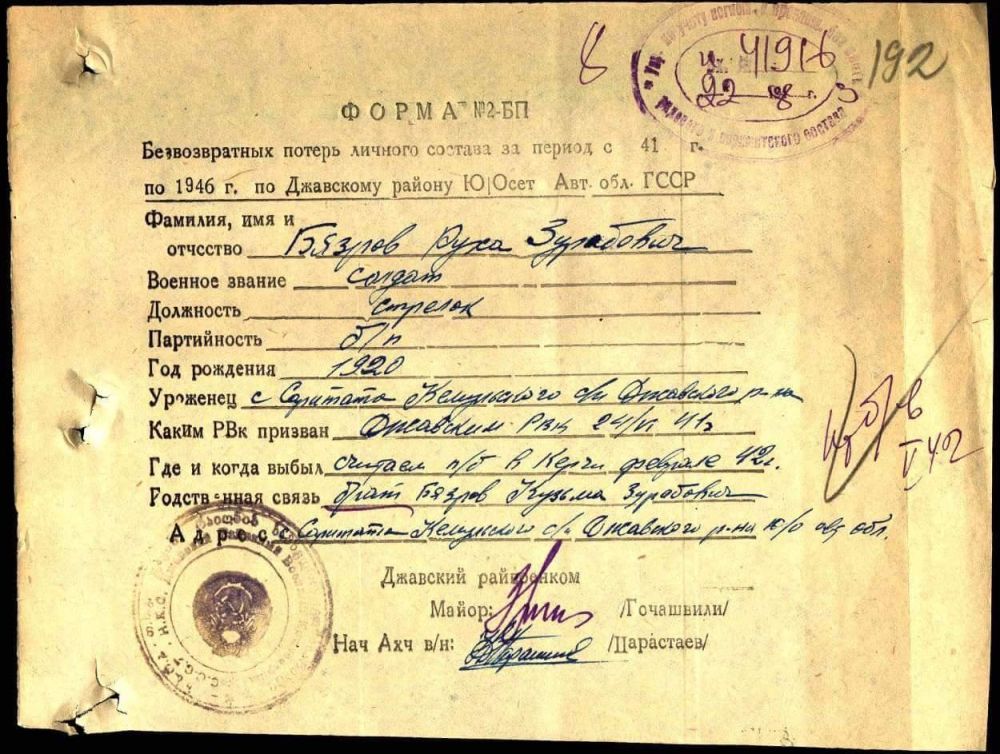 8
192
41916
22 8
ФОРМА №2-БП
Безвозвратных потерь личного состава за период с 41 г.
по 1946 г. по Джавскому району Ю|Осет Авт. обл. ГССР
Фамилия, имя и
отчсство Бязров Руха Зурабович
Военное звание солдат
Должность стрелок
Партийность б/п
Год рождения 1920
Уроженец с Кемульского с/с Джавского р-на
Каким РВк призван Джавским РВК 24/VI 41г
Где и когда выбыл считаем п/б в Керчи феврале 42г.
Родственная связь брат Бязров Кузьма Зурабович
Адрес с Кемульского с/с Джавского р-на ю/о авт обл.
Джавский райвоенком
Майор: /Гочашвили/
Нач Ахч в/н: /Парастаев/